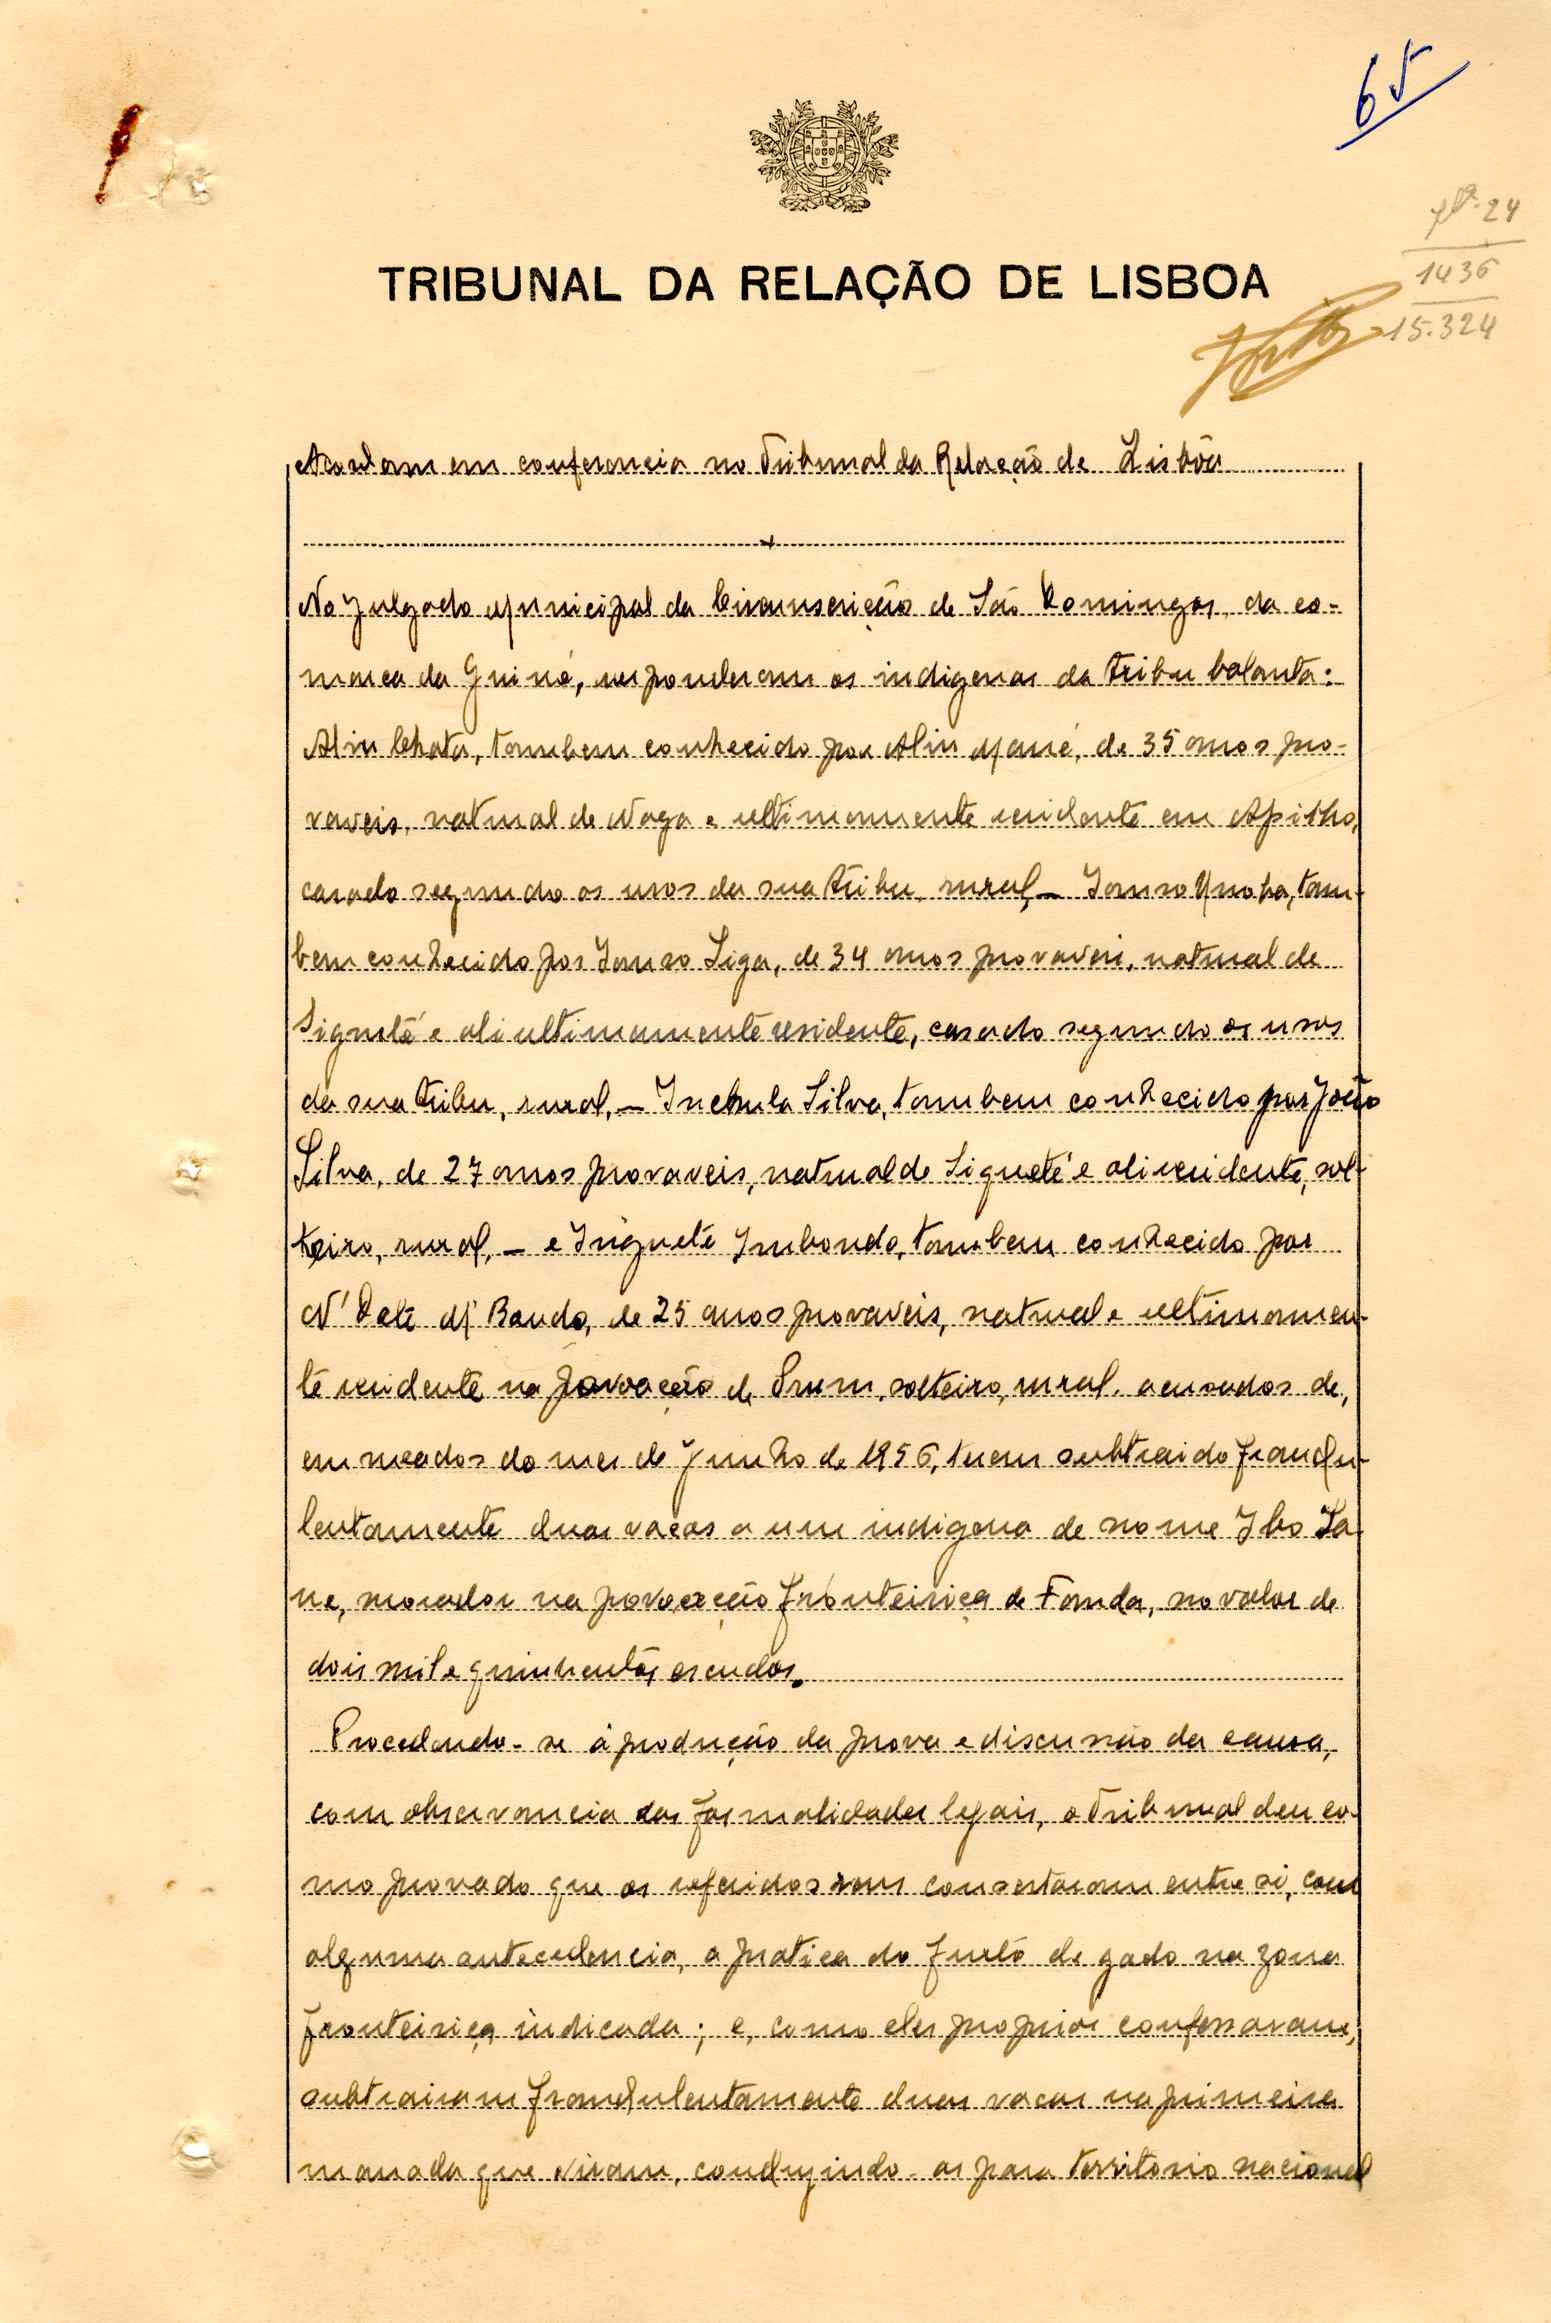 65
fl. 24
1436
15.324
TRIBUNAL DA RELAÇÃO DE LISBOA
Acordam em conferencia no Tribunal da Relação de Lisbôa
No Julgado Municipal da Circunscrição de São Domingos, da co-
marca da Guiné, responderam os indigenas da tribu balanta:
Aliu Chata, tambem conhecido por Aliu Mané, de 35 anos pro-
vaveis, natural de Naga e ultimamente residente em Apilho,
casado segundo os usos da sua tribu, rural, – Iamso Unoha, tam-
bem conhecido por Iamso Siga, de 34 anos provaveis, natural de
Sigueté e ali ultimamente residente, casado segundo os usos
da sua tribu, rural, – Inchula Silva, tambem conhecido por João
Silva, de 27 anos provaveis, natural de Sigueté e ali residente, sol-
teiro, rural, – e Inguete Imbondo, tambem conhecido por
N'Dete M'Bando, de 25 anos provaveis, natural e ultimamen-
te residente na povoação de Prum, solteiro, rural, acusados de,
em meados do mes de Junho de 1956, terem subtraido fraudu-
lentamente duas vacas a um indigena de nome Ibo Sa-
ne, morador na povoação fronteiriça de Fanda, no valor de
dois mil e quinhentos escudos.
Procedendo-se à produção da prova e discussão da causa,
com observancia das formalidades legais, o Tribunal deu co-
mo provado que os referidos reus consertaram entre si, com
alguma antecedencia, a pratica do furto de gado na zona
fronteiriça indicada; e, como eles proprios confessaram,
subtrairam fraudulentamente duas vacas na primeira
manada que viram, conduzindo-as para territorio nacional